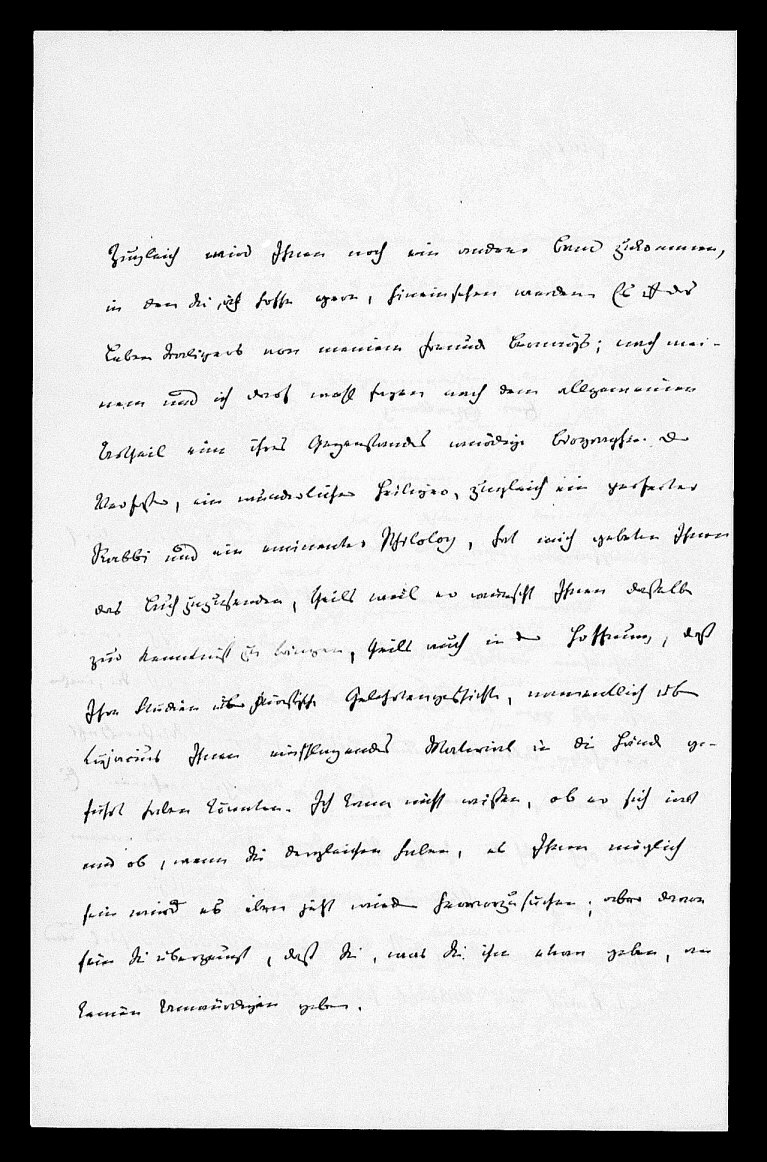 Zugleich wird Ihnen noch ein anderer Band zukommen,
in den Sie, ich hoffe gern, hineinsehen werden. Es ist das
Leben Scaligers von meinem Freund Bernays; nach mei-
nem und ich darf wohl sagen nach dem allgemeinen
Urtheil eine ihres Gegenstandes würdige Biographie. Der
Verfasser, ein wunderlicher Heiliger, zugleich ein perfecter
Rabbi und ein eminenter Philolog, hat mich gebeten Ihnen
das Buch zuzusenden, theils weil er wünscht Ihnen dasselbe
zur Kenntniß zu bringen, theils auch in der Hoffnung, daß
Ihre Studien über juristische Gelehrtengeschichte, namentlich über
Cujacius Ihnen einschlagendes Material in die Hände ge-
führt haben könnten. Ich kann nicht wissen, ob er sich irrt
und ob, wenn Sie dergleichen haben, es Ihnen möglich
sein wird es eben jetzt wieder hervorzusuchen; aber davon
sein Sie überzeugt, daß Sie, was Sie ihm etwa geben, an
keinen Unwürdigen geben.